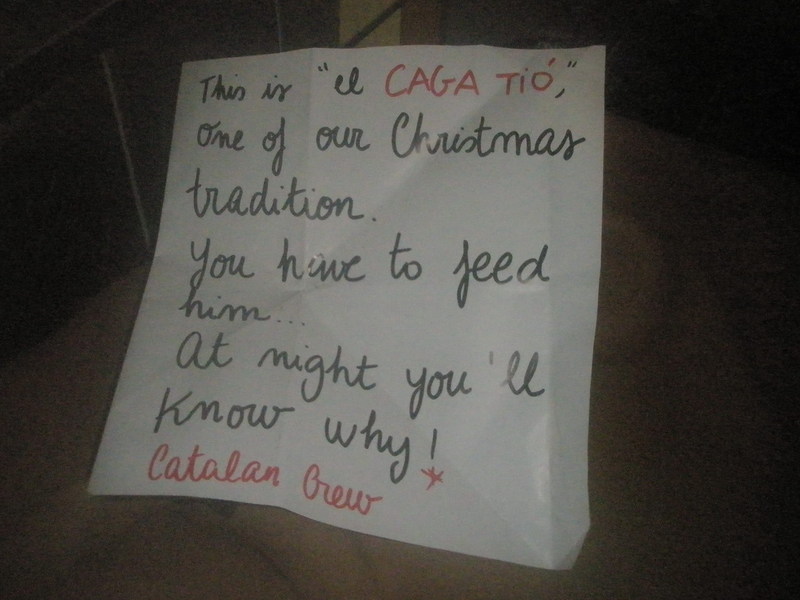 This is "el CAGA TIÓ,"
one of our Christmas
tradition.
You have to feed
him...
At night you'll
Know why!
Catalan Crew *